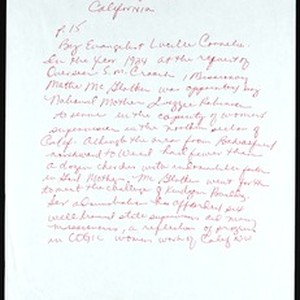 California
p. 15
By Evangelist Lucille Cornelius
In the Year 1924 at the request of
Overseer E.M. Crouch, Missionary
Mattie Mc Glothen was appointed by
National Mother Lizzie Robinson
to serve in the capacity of women's
supervisor in the northern section of
Calif. Although the area from Bakersfield
northward to Weed had fewer than
a dozen churches with indomitable faith
in God Mother Mc Glothen went forth
to meet the challenge of Kingdom Building.
her administration has afforded six
well trained state supervisors and many
missionaries, a reflection of progress
in COGIC women work of Calif NW